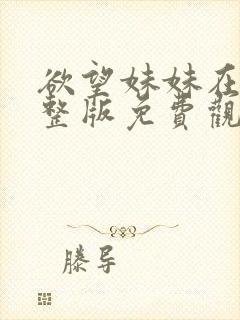 欲望妹妹在
整版免費觀
滕导